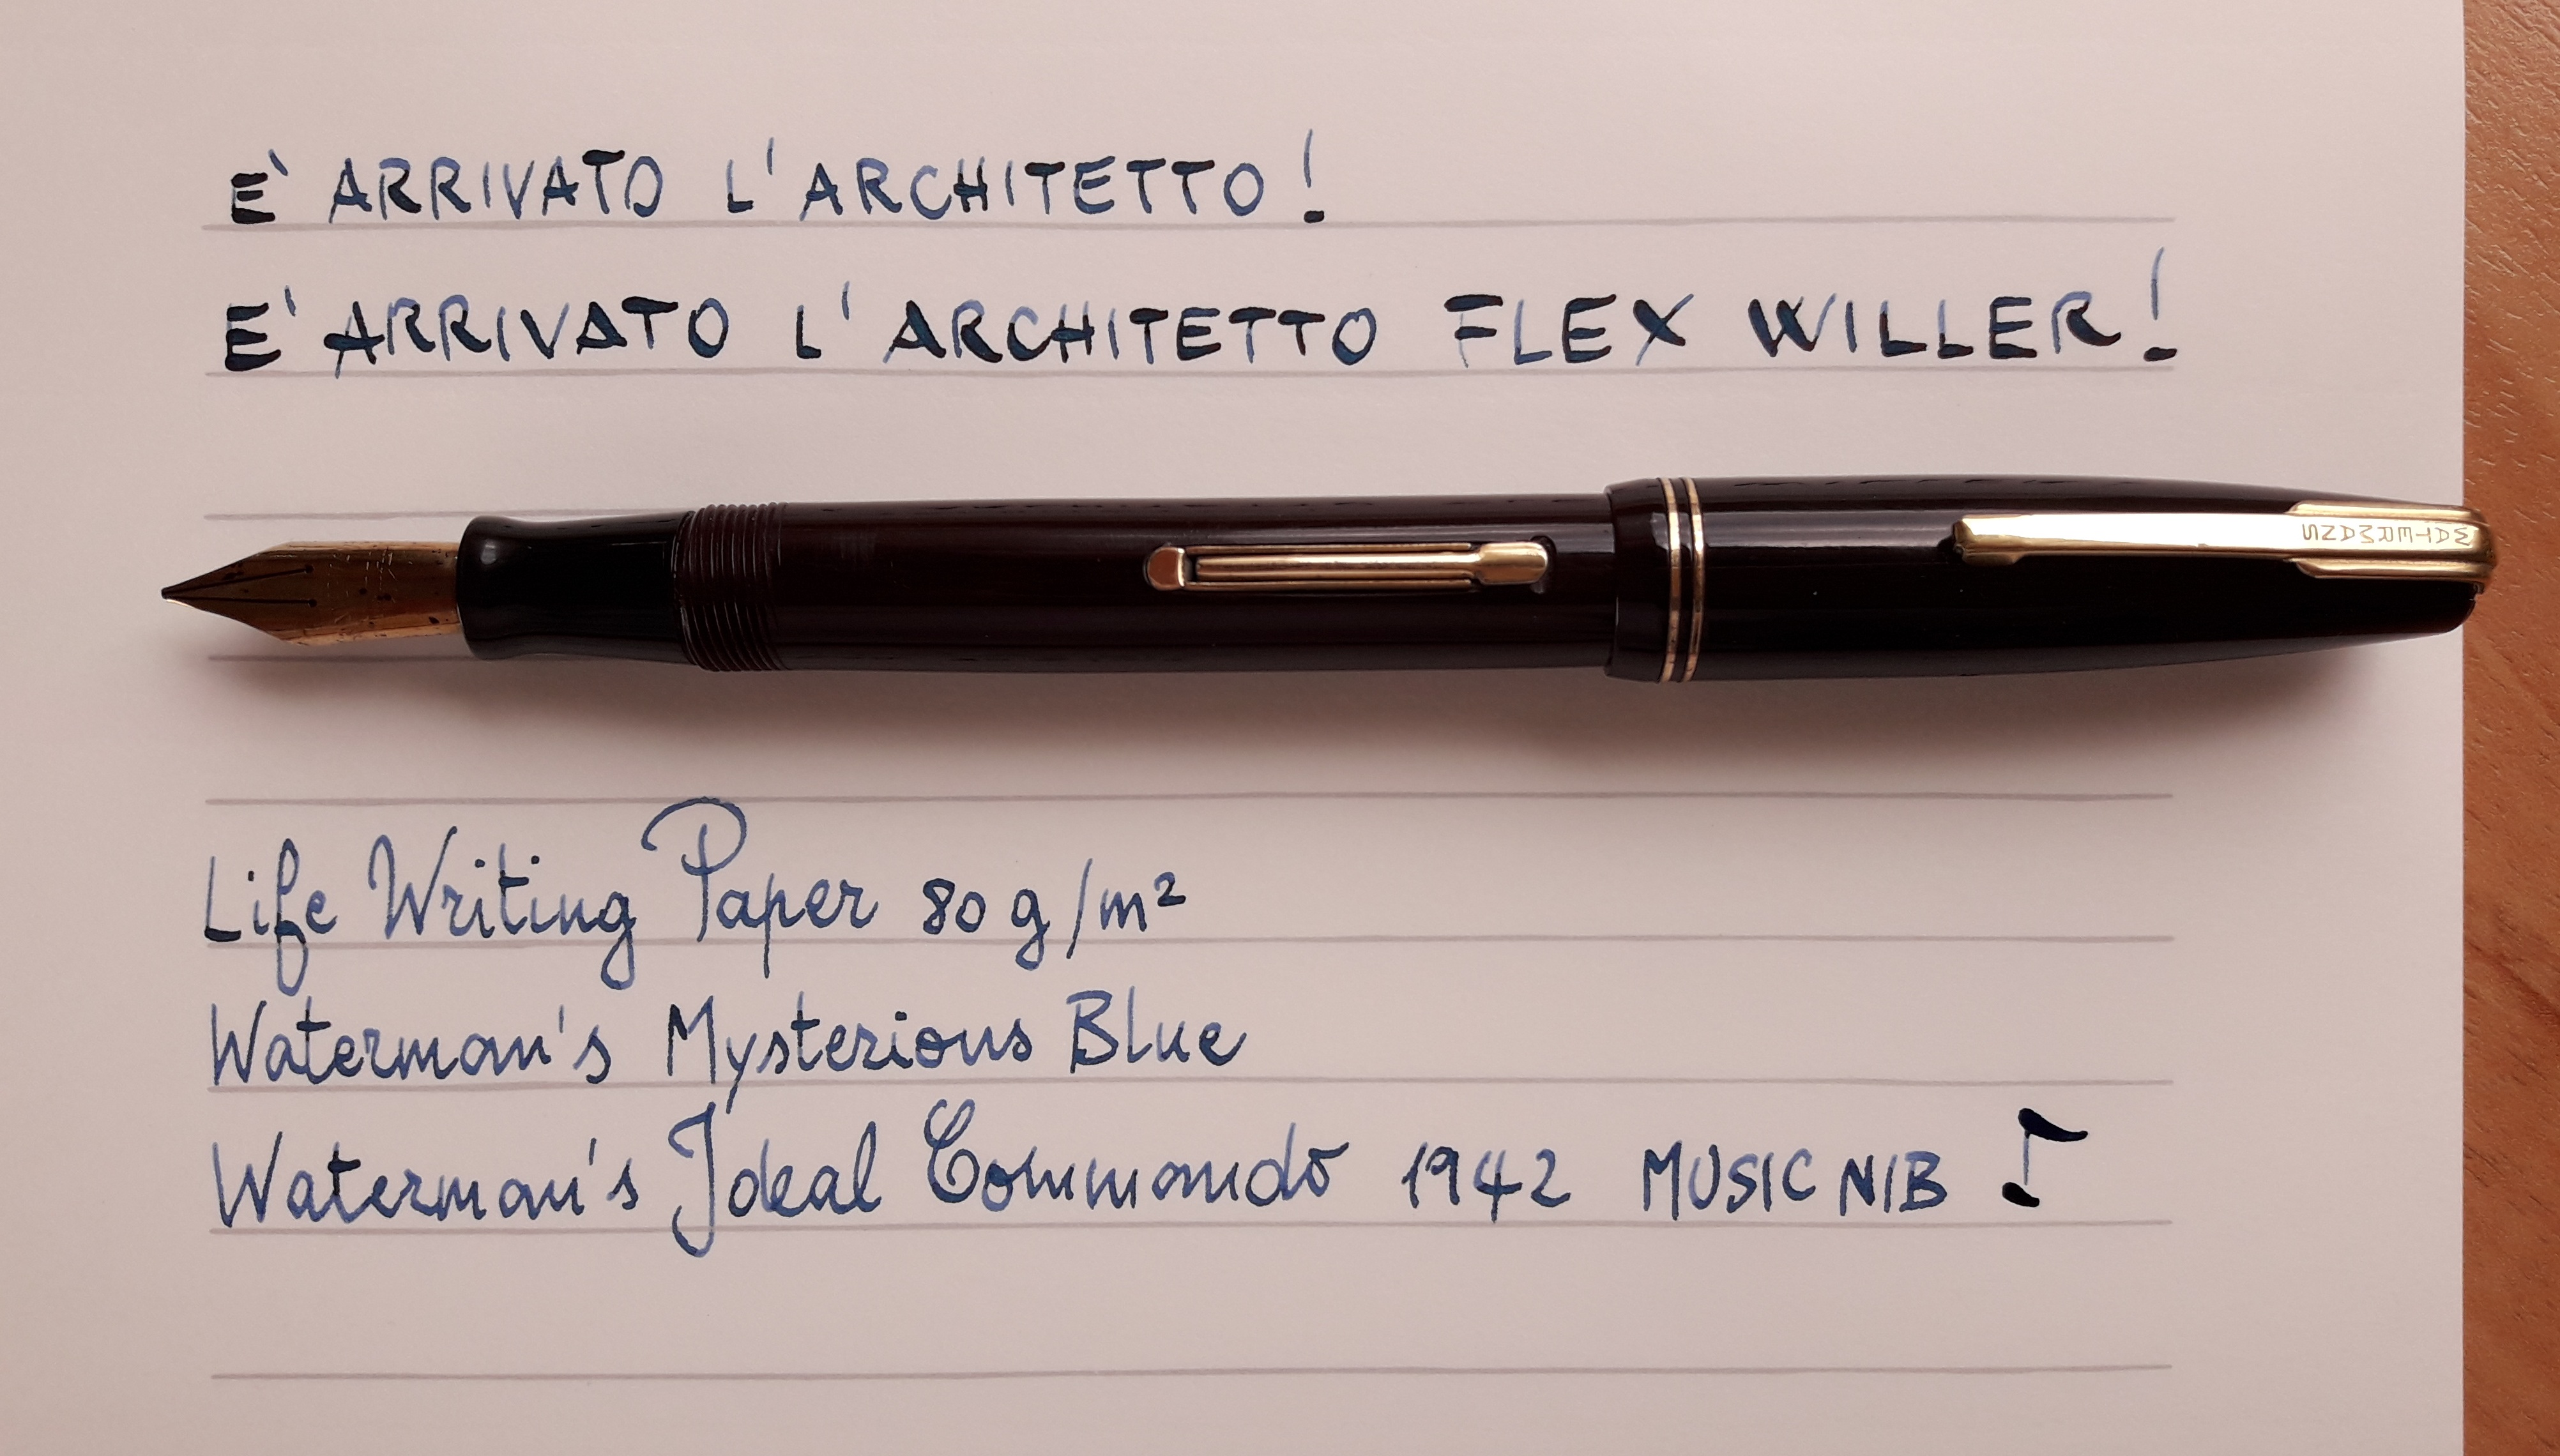 E' ARRIVATO L'ARCHITETTO!
E' ARRIVATO L'ARCHITETTO FLEX WILLER!
WATERMANS
Life Writing Paper 80 g/m²
Waterman's Mysterious Blue
Waterman's Ideal Commando 1942 MUSIC NIB ♪